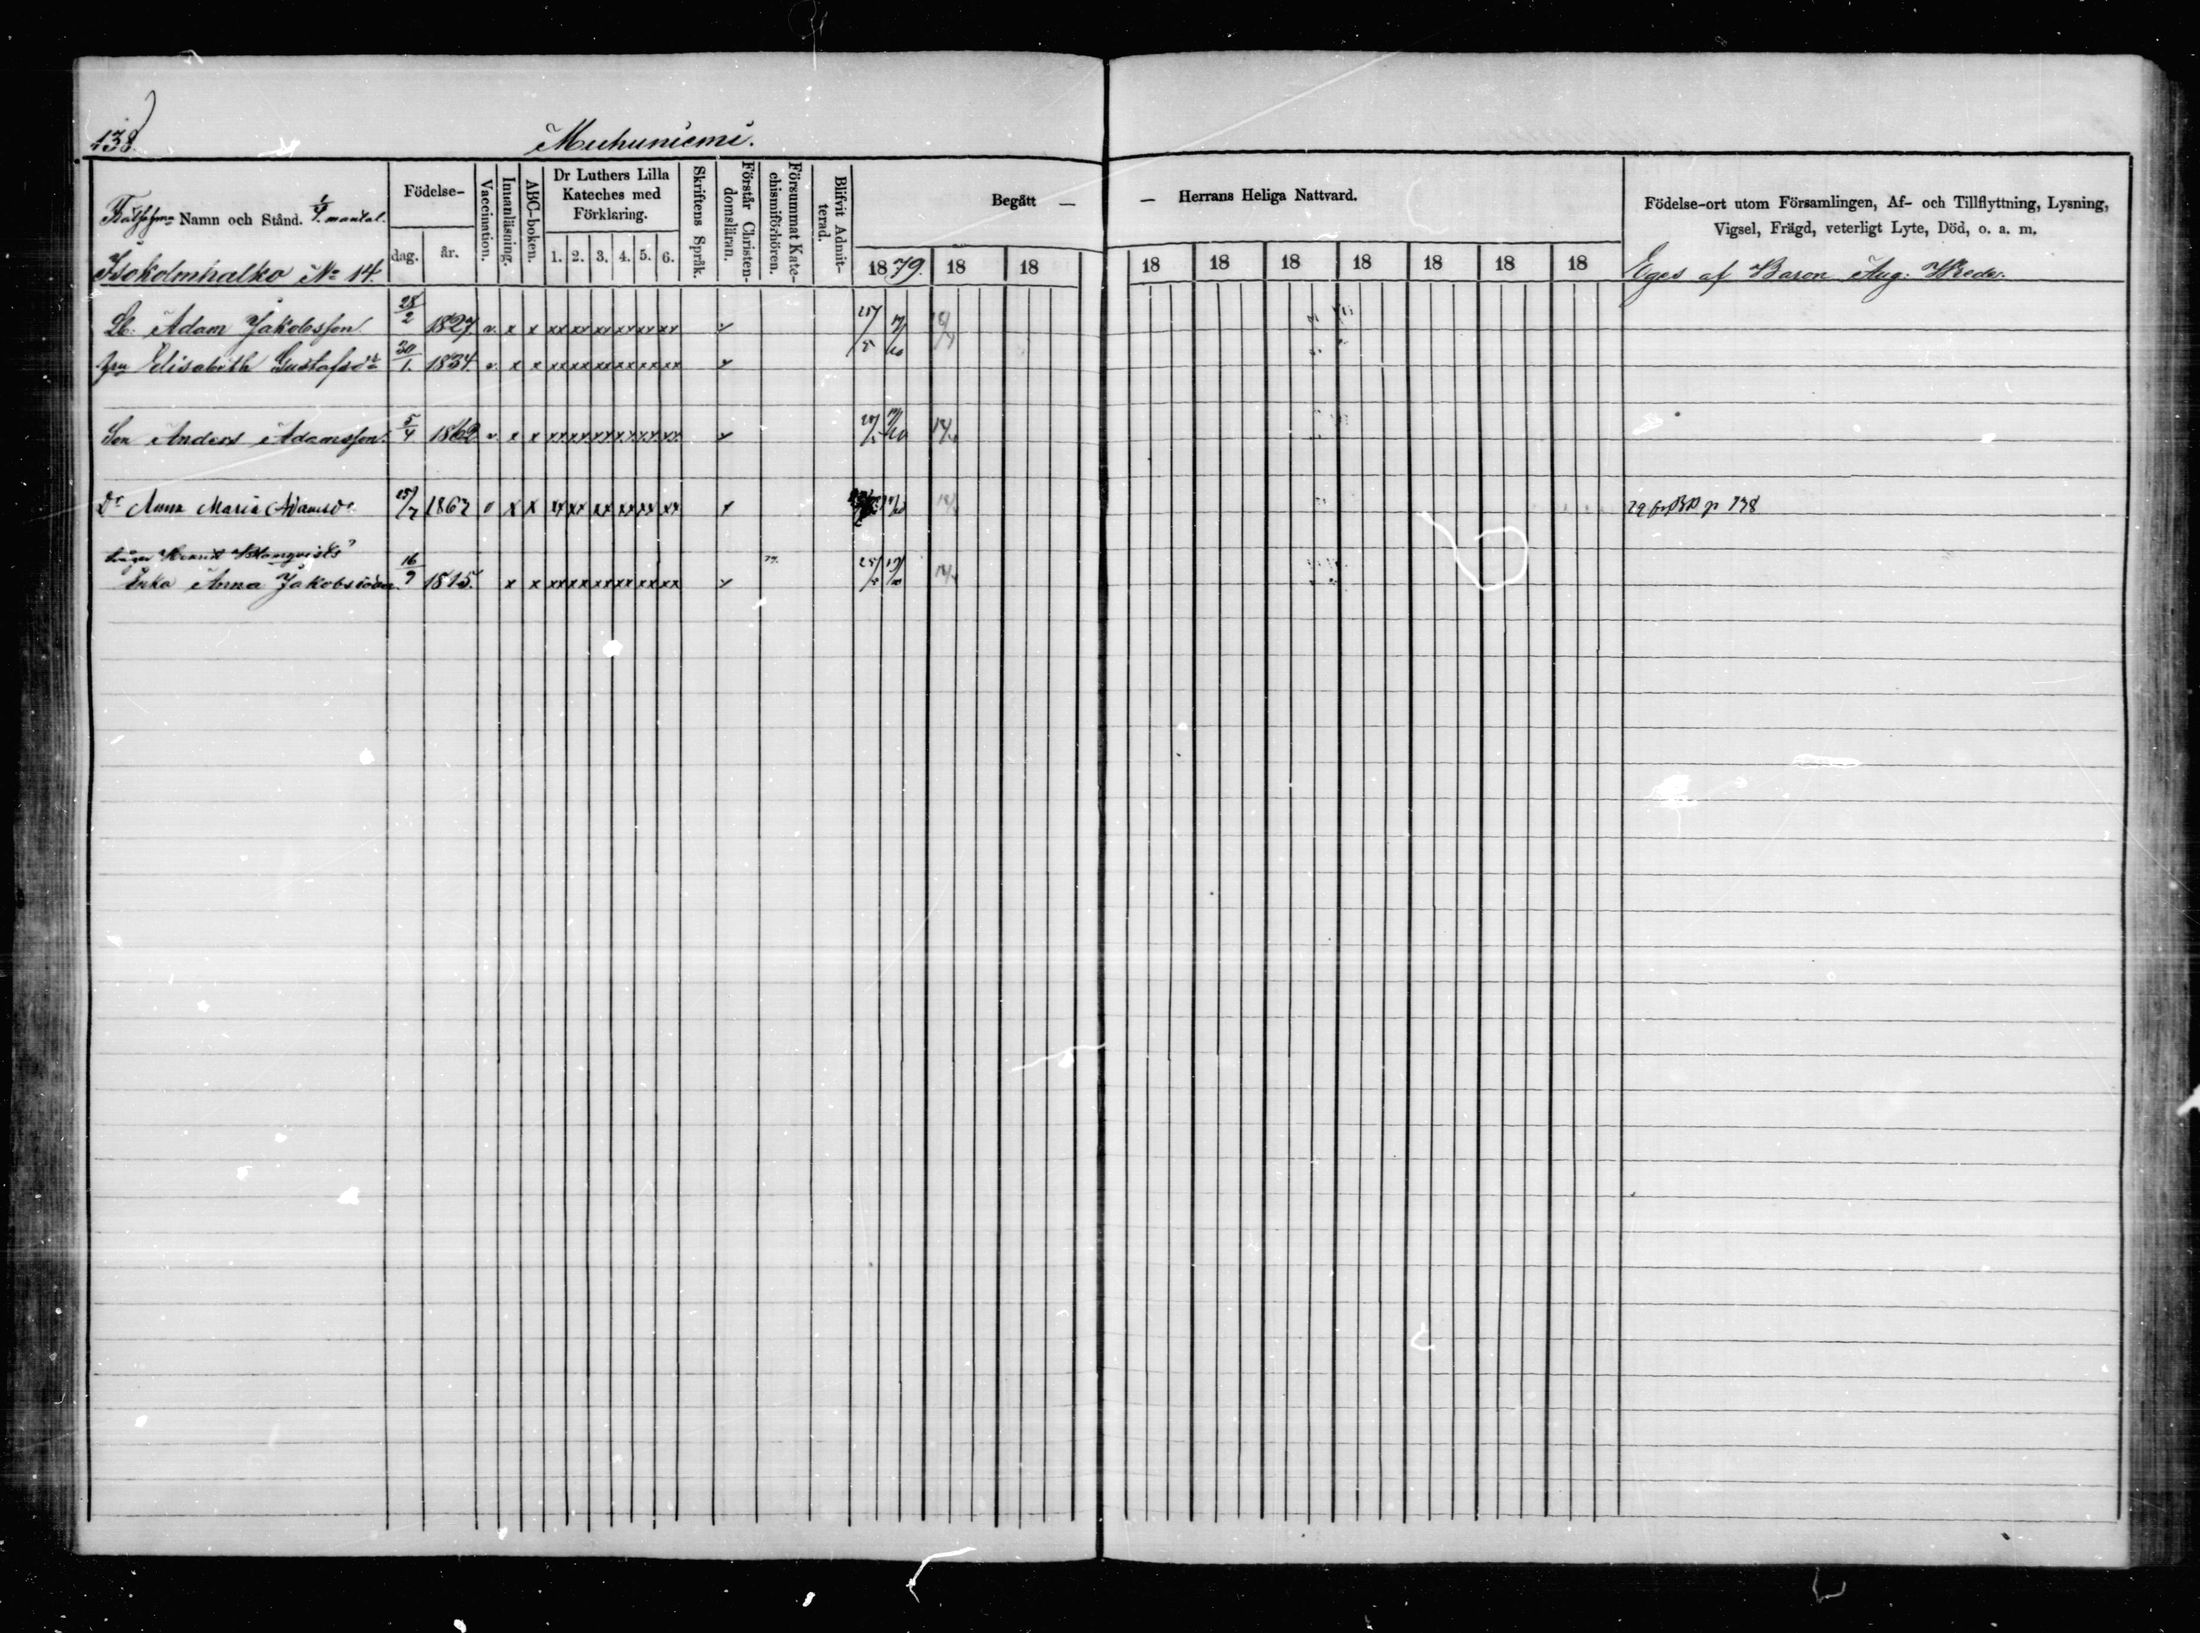 138.
Muhuniemi.
Namn och Stånd. mantal.
Födelse-
dag. år.
Vaccination.
Innanläsning.
ABC-boken.
Dr Luthers Lilla
Kateches med
Förklaring.
1. 2. 3. 4. 5. 6.
Skriftens Språk.
Förstår Christen-
domsläran.
Försummat Kate-
chismiförhören.
Blifvit Admit-
terad.
Begått — — Herrans Heliga Nattvard.
1879. 18 18 18 18 18 18 18 18 18
Födelse-ort utom Församlingen, Af- och Tillflyttning, Lysning,
Vigsel, Frägd, veterligt Lyte, Död, o. a. m.
Isokolmhalko No 14. Eges af Baron Aug: Wrede.
Lb. Adam Jakobsson 28/2 1827 v. x x xx xx xx xx xx xx
Hru Elisabeth Gustafsdr 30/1. 1834. v. x x xx xx xx xx xx xx
Son Anders Adamsson. 5/4 1862 v. x x xx xx xx xx xx xx
Dr Anna Maria Adamsdr. 25/7 1867 v x x xx xx xx xx xx xx p 138
Enka Anna Jakobsdr. 16/9 1815. x x xx xx xx xx xx xx